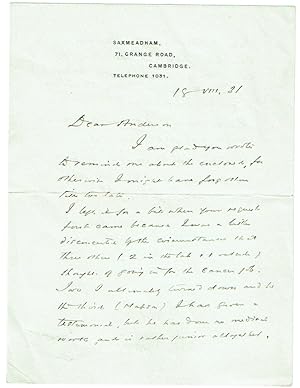 SAXMEADHAM,
71, GRANGE ROAD,
CAMBRIDGE.
TELEPHONE 1031.
18 VIII. 31
Dear Anderson
I am glad you wrote
to remind me about the enclosed, for
otherwise I might have forgotten
till too late.
I left it for a bit when your request
first came because I was a little
disconcerted by the circumstance that
three others (2 in the lab + 1 outside)
thought of going in for the Cancer job.
Two I ultimately turned down and to
the third (Mapson) I had given a
testimonial, but he has done no medical
work and is rather junior altogether.